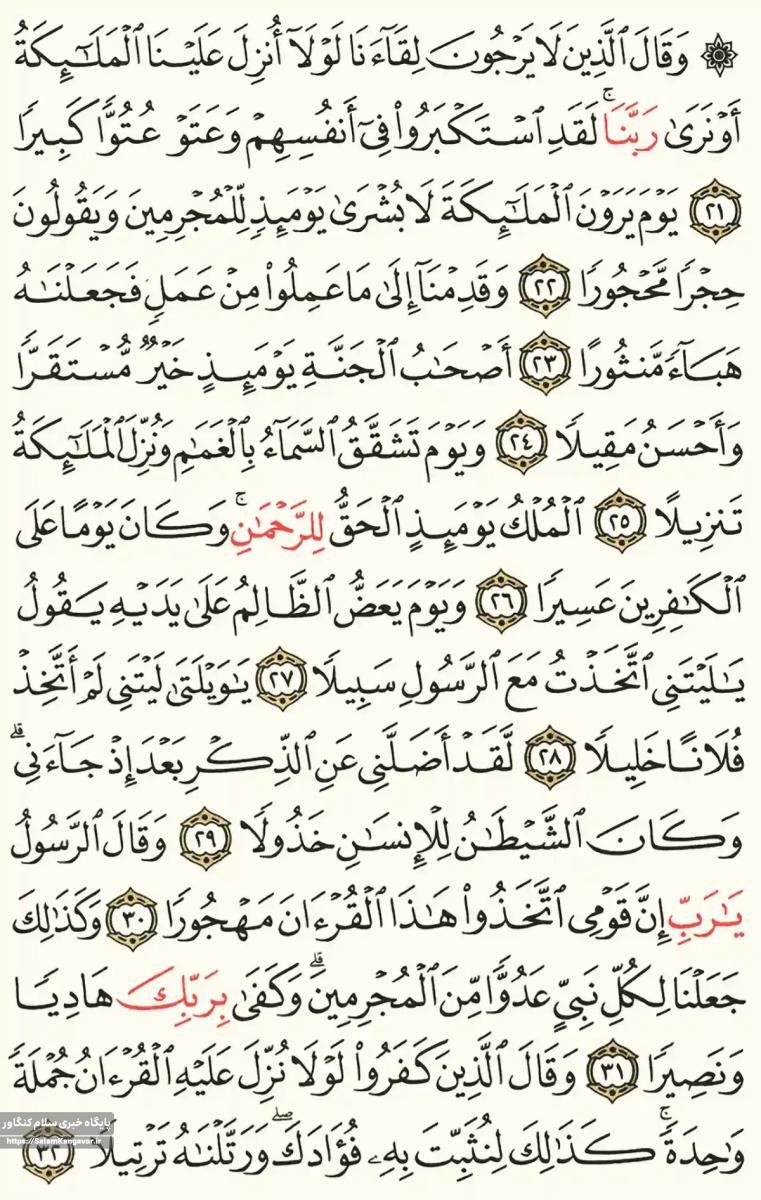 ۞ وَقَالَ ٱلَّذِينَ لَا يَرْجُونَ لِقَآءَنَا لَوْلَآ أُنزِلَ عَلَيْنَا ٱلْمَلَـٰٓئِكَةُ
أَوْ نَرَىٰ رَبَّنَا ۗ لَقَدِ ٱسْتَكْبَرُوا۟ فِىٓ أَنفُسِهِمْ وَعَتَوْ عُتُوًّا كَبِيرًا
٢١ يَوْمَ يَرَوْنَ ٱلْمَلَـٰٓئِكَةَ لَا بُشْرَىٰ يَوْمَئِذٍ لِّلْمُجْرِمِينَ وَيَقُولُونَ
حِجْرًا مَّحْجُورًا ٢٢ وَقَدِمْنَآ إِلَىٰ مَا عَمِلُوا۟ مِنْ عَمَلٍ فَجَعَلْنَـٰهُ
هَبَآءً مَّنثُورًا ٢٣ أَصْحَـٰبُ ٱلْجَنَّةِ يَوْمَئِذٍ خَيْرٌ مُّسْتَقَرًّا
وَأَحْسَنُ مَقِيلًا ٢٤ وَيَوْمَ تَشَقَّقُ ٱلسَّمَآءُ بِٱلْغَمَـٰمِ وَنُزِّلَ ٱلْمَلَـٰٓئِكَةُ
تَنزِيلًا ٢٥ ٱلْمُلْكُ يَوْمَئِذٍ ٱلْحَقُّ لِلرَّحْمَـٰنِ ۚ وَكَانَ يَوْمًا عَلَى
ٱلْكَـٰفِرِينَ عَسِيرًا ٢٦ وَيَوْمَ يَعَضُّ ٱلظَّالِمُ عَلَىٰ يَدَيْهِ يَقُولُ
يَـٰلَيْتَنِى ٱتَّخَذْتُ مَعَ ٱلرَّسُولِ سَبِيلًا ٢٧ يَـٰوَيْلَتَىٰ لَيْتَنِى لَمْ أَتَّخِذْ
فُلَانًا خَلِيلًا ٢٨ لَّقَدْ أَضَلَّنِى عَنِ ٱلذِّكْرِ بَعْدَ إِذْ جَآءَنِى ۗ
وَكَانَ ٱلشَّيْطَـٰنُ لِلْإِنسَـٰنِ خَذُولًا ٢٩ وَقَالَ ٱلرَّسُولُ
يَـٰرَبِّ إِنَّ قَوْمِى ٱتَّخَذُوا۟ هَـٰذَا ٱلْقُرْءَانَ مَهْجُورًا ٣٠ وَكَذَٰلِكَ
جَعَلْنَا لِكُلِّ نَبِىٍّ عَدُوًّا مِّنَ ٱلْمُجْرِمِينَ ۗ وَكَفَىٰ بِرَبِّكَ هَادِيًا
وَنَصِيرًا ٣١ وَقَالَ ٱلَّذِينَ كَفَرُوا۟ لَوْلَا نُزِّلَ عَلَيْهِ ٱلْقُرْءَانُ جُمْلَةً
وَٰحِدَةً ۚ كَذَٰلِكَ لِنُثَبِّتَ بِهِۦ فُؤَادَكَ ۖ وَرَتَّلْنَـٰهُ تَرْتِيلًا ٣٢
پایگاه خبری سلام کنگاور
https://SalamKangavar.ir